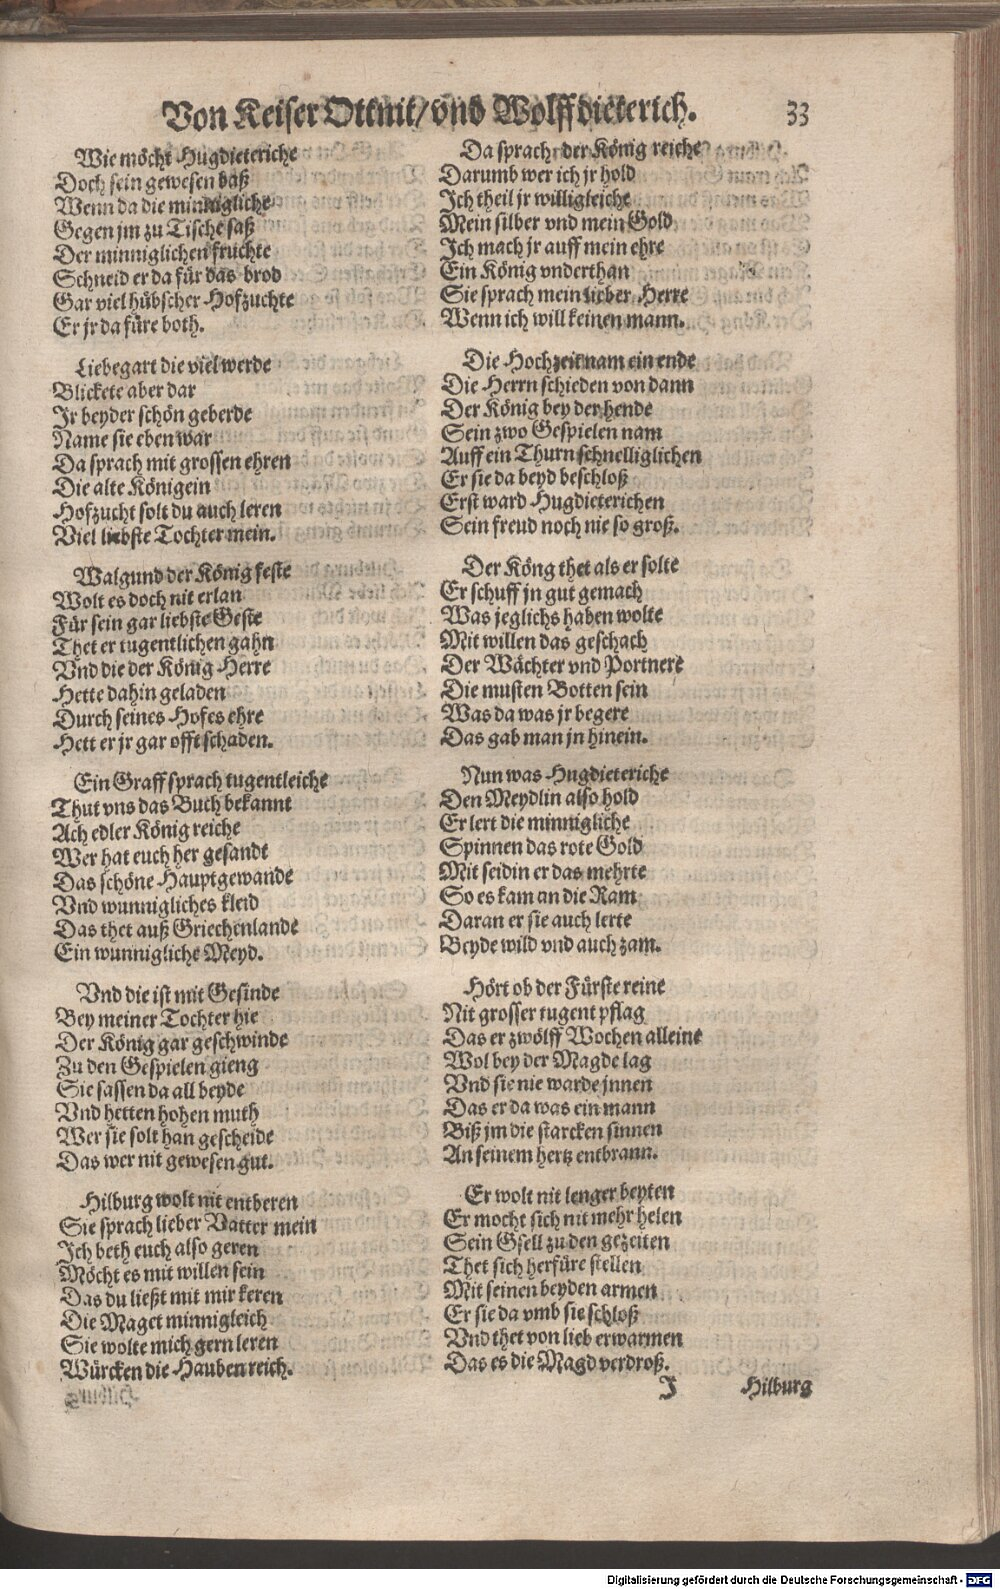 Von Keiser Ottnit/ vnd Wolffdieterich. 33
Wie möcht Hugdieteriche
Doch sein gewesen baß
Wenn da die minnigliche
Gegen jm zu Tische saß
Der minniglichen fruchte
Schneid er da für das brod
Gar viel hübscher Hofzuchte
Er jr da füre both.
Liebegart die viel werde
Blickete aber dar
Jr beyder schön geberde
Name sie eben war
Da sprach mit grossen ehren
Die alte Königein
Hofzucht solt du auch leren
Viel liebste Tochter mein.
Walgund der König feste
Wolt es doch nit erlan
Für sein gar liebste Geste
Thet er tugentlichen gahn
Vnd die der König Herre
Hette dahin geladen
Durch seines Hofes ehre
Hett er jr gar offt schaden.
Ein Graff sprach tugentleiche
Thut vns das Buch bekannt
Ach edler König reiche
Wer hat euch her gesandt
Das schöne Hauptgewande
Vnd wunnigliches kleid
Das thet auß Griechenlande
Ein wunnigliche Meyd.
Vnd die ist mit Gesinde
Bey meiner Tochter hie
Der König gar geschwinde
Zu den Gespielen gieng
Sie sassen da all beyde
Vnd hetten hohen muth
Wer sie solt han gescheide
Das wer nit gewesen gut.
Hilburg wolt nit entberen
Sie sprach lieber Vatter mein
Ich beth euch also geren
Möcht es mit willen sein
Das du ließt mit mir keren
Die Maget minnigleich
Sie wolte mich gern leren
Würcken die Hauben reich.
Da sprach der König reiche
Darumb wer ich jr hold
Ich theil jr williglciche
Mein silber vnd mein Gold
Ich mach jr auff mein ehre
Ein König vnderthan
Sie sprach mein lieber Herre
Wenn ich will keinen mann.
Die Hochzeit nam ein ende
Die Herrn schieden von dann
Der König bey der hende
Sein zwo Gespielen nam
Auff ein Thurn schnelliglichen
Er sie da beyd beschloß
Erst ward Hugdieterichen
Sein freud noch nie so groß.
Der Köng thet als er solte
Er schuff jn gut gemach
Was jeglichs haben wolte
Mit willen das geschach
Der Wächter vnd Portnere
Die musten Botten sein
Was da was jr begere
Das gab man jn hinein.
Nun was Hugdieteriche
Den Meydlin also hold
Er lert die minnigliche
Spinnen das rote Gold
Mit seidin er das mehrte
So es kam an die Ram
Daran er sie auch lerte
Beyde wild vnd auch zam.
Hört ob der Fürste reine
Nit grosser tugent pflag
Das er zwölff Wochen alleine
Wol bey der Magde lag
Vnd sie nie warde jnnen
Das er da was ein mann
Biß jm die starcken sinnen
An seinem hertz entbrann.
Er wolt nit lenger beyten
Er mocht sich nit mehr helen
Sein Gsell zu den gezeiten
Thet sich herfüre stellen
Mit seinen beyden armen
Er sie da vmb sie schloß
Vnd thet von lieb erwarmen
Das es die Magd verdroß.
J Hilburg
Digitalisierung gefördert durch die Deutsche Forschungsgemeinschaft - DFG